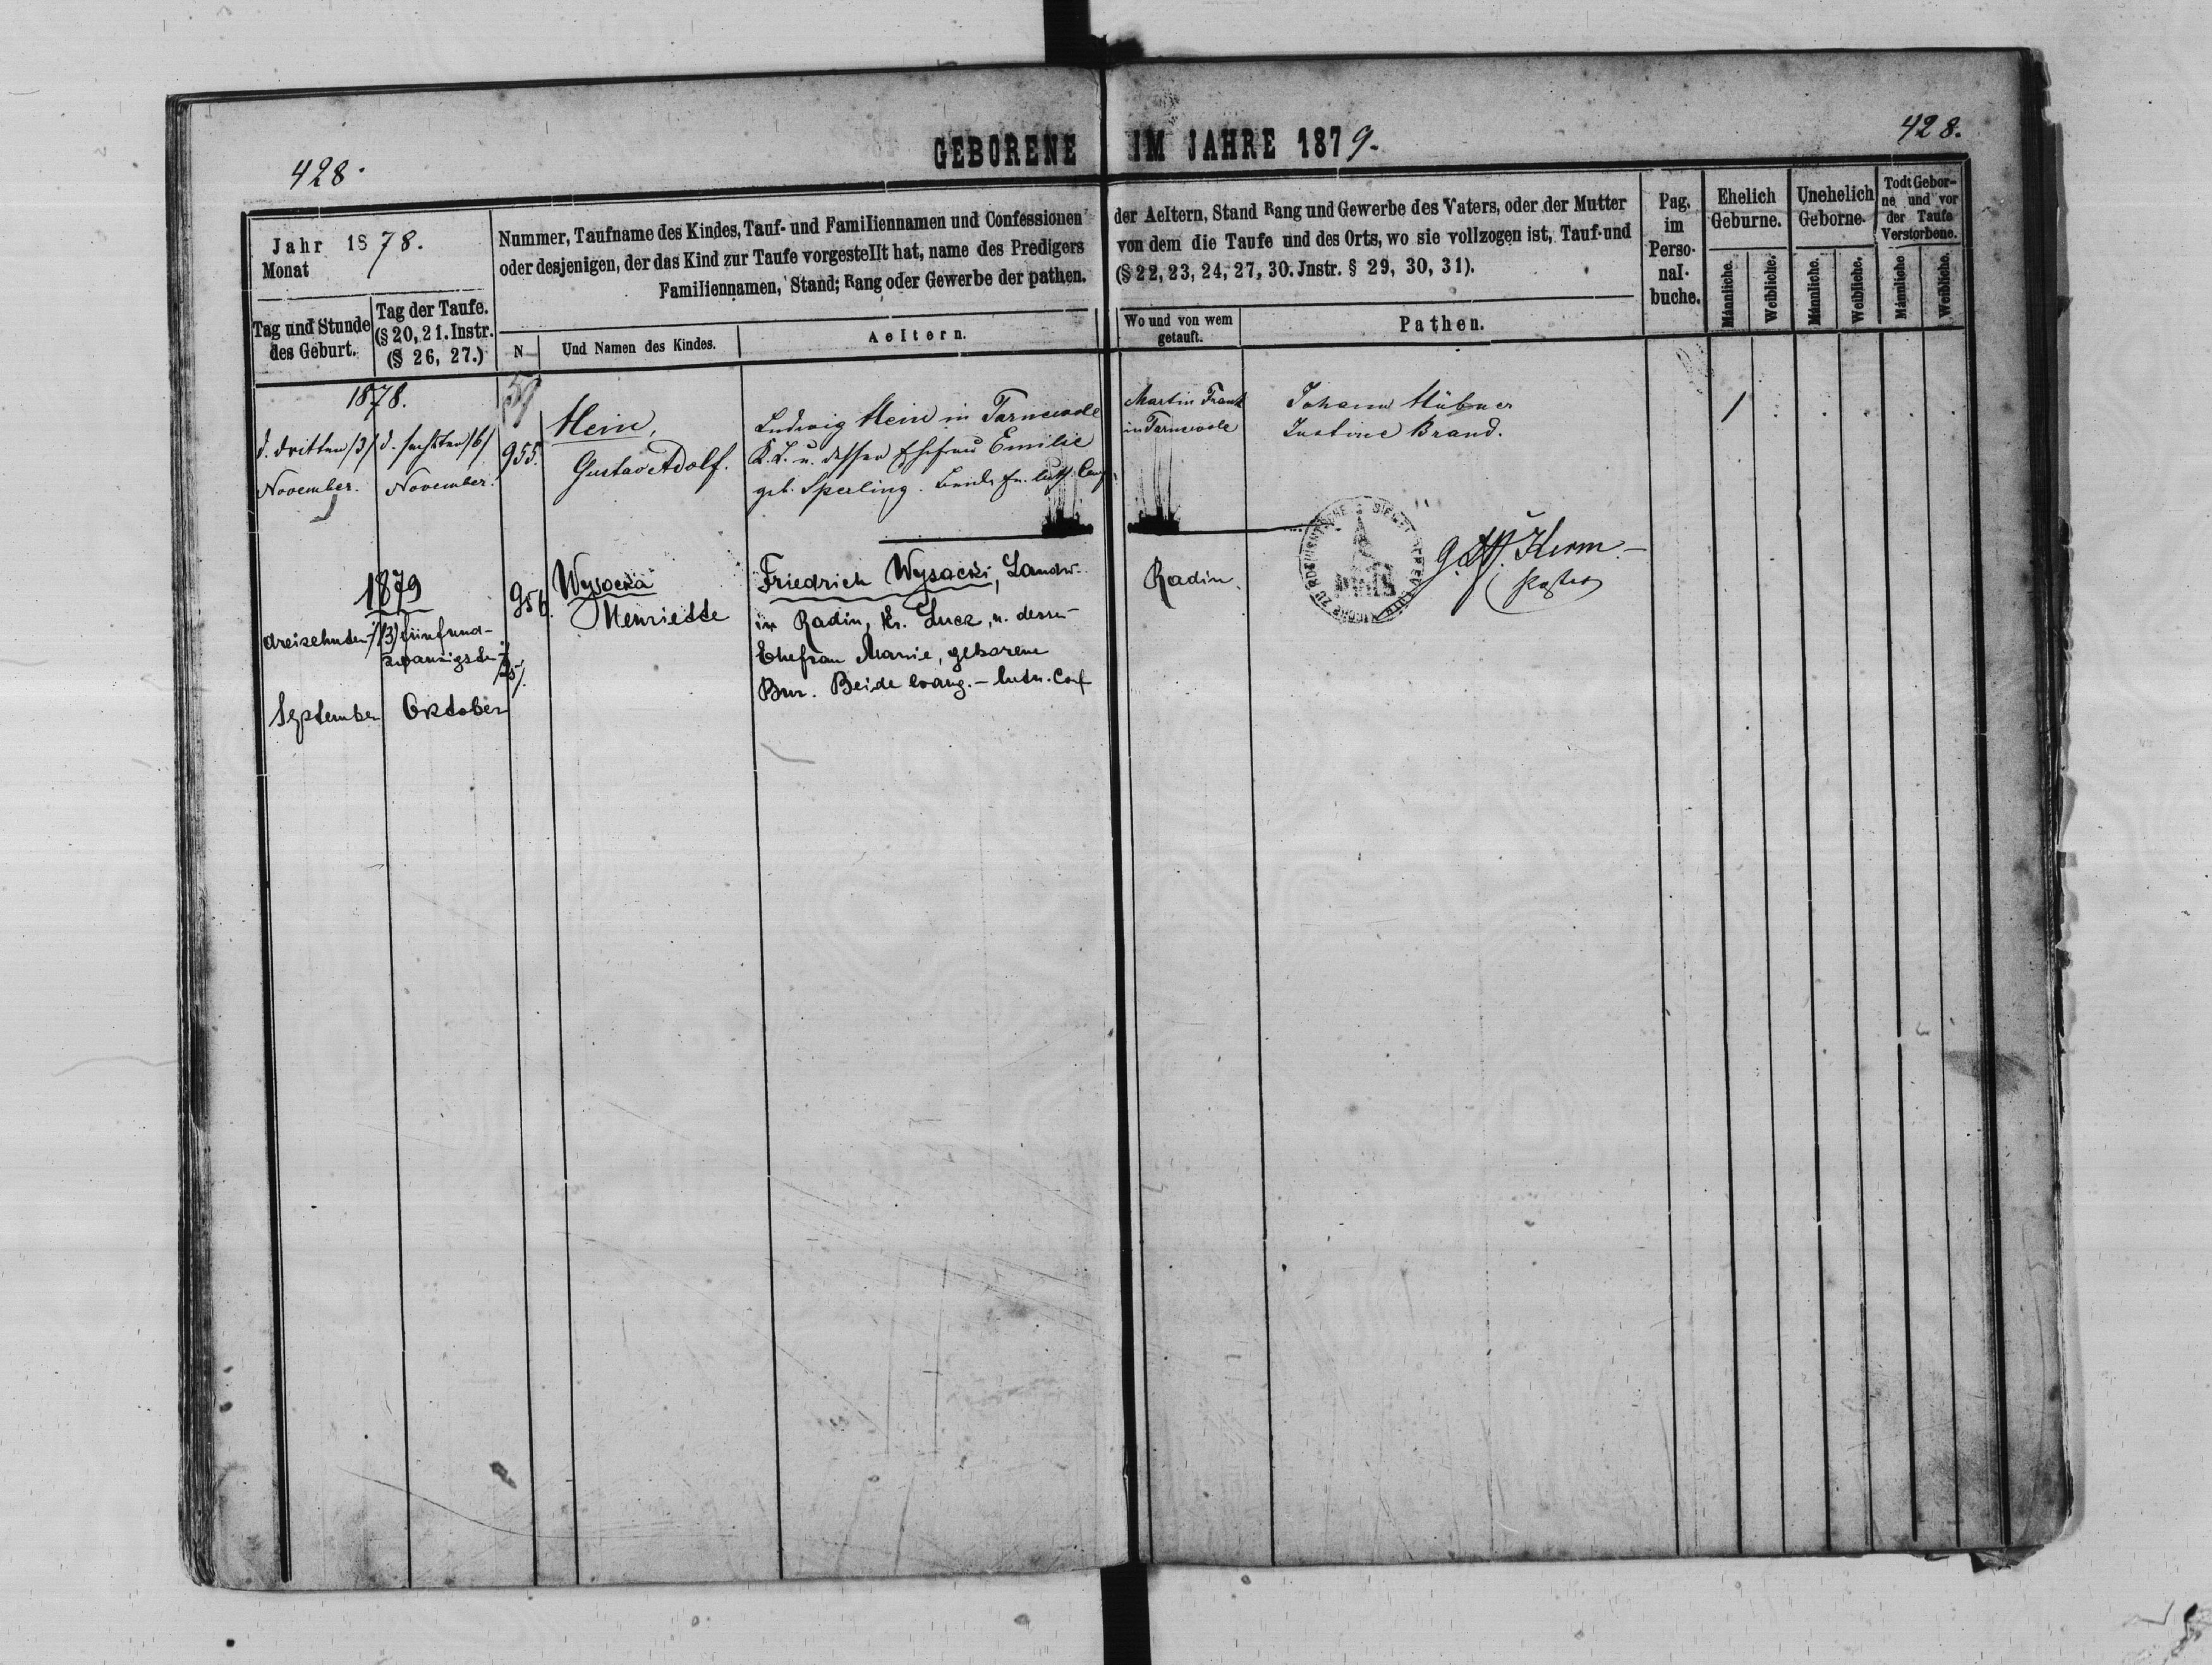 428.
GEBORENE IM JAHRE 1879.
428.
Jahr 1878.
Monat
Tag und Stunde
des Geburt.
Tag der Taufe.
(§ 20, 21. Instr.
(§ 26, 27.)
Nummer, Taufname des Kindes, Tauf- und Familiennamen und Confessionen
oder desjenigen, der das Kind zur Taufe vorgestellt hat, name des Predigers
Familiennamen, Stand; Rang oder Gewerbe der pathen.
N
Und Namen des Kindes.
Aeltern.
der Aeltern, Stand Rang und Gewerbe des Vaters, oder der Mutter
von dem die Taufe und des Orts, wo sie vollzogen ist, Tauf-und
(§ 22, 23, 24, 27, 30. Jnstr. § 29, 30, 31).
Wo und von wem
getauft.
Pathen.
Pag.
im
Perso-
nal-
buche.
Ehelich
Geburne.
Unehelich
Geborne.
Todt Gebor-
ne und vor
der Taufe
Verstorbene.
Männliche.
Weibliche.
Männliche.
Weibliche.
Männliche
Weibliche.
1878.
d. dritten /3/
November.
d. sechsten /6/
November.
955.
Hein,
Gustav Adolf.
Ludwig Hein in Tarnewole
K. L. u. dessen Ehefrau Emilie
geb. Sperling. Beide ev. luth. Conf.
Martin Frank
in Tarnewole
Johann Hübner
Justine Brand.
1879
dreizehnten /13/
September
fünfund-
zwanzigsten
/25/.
Oktober
956.
Wysocka
Henriette
Friedrich Wysacki, Landw.
in Radin, Kr. Luck, u. dessen
Ehefrau Marie, geborene
Bur. Beide evang.-luth. Conf
Radin.
Pastor